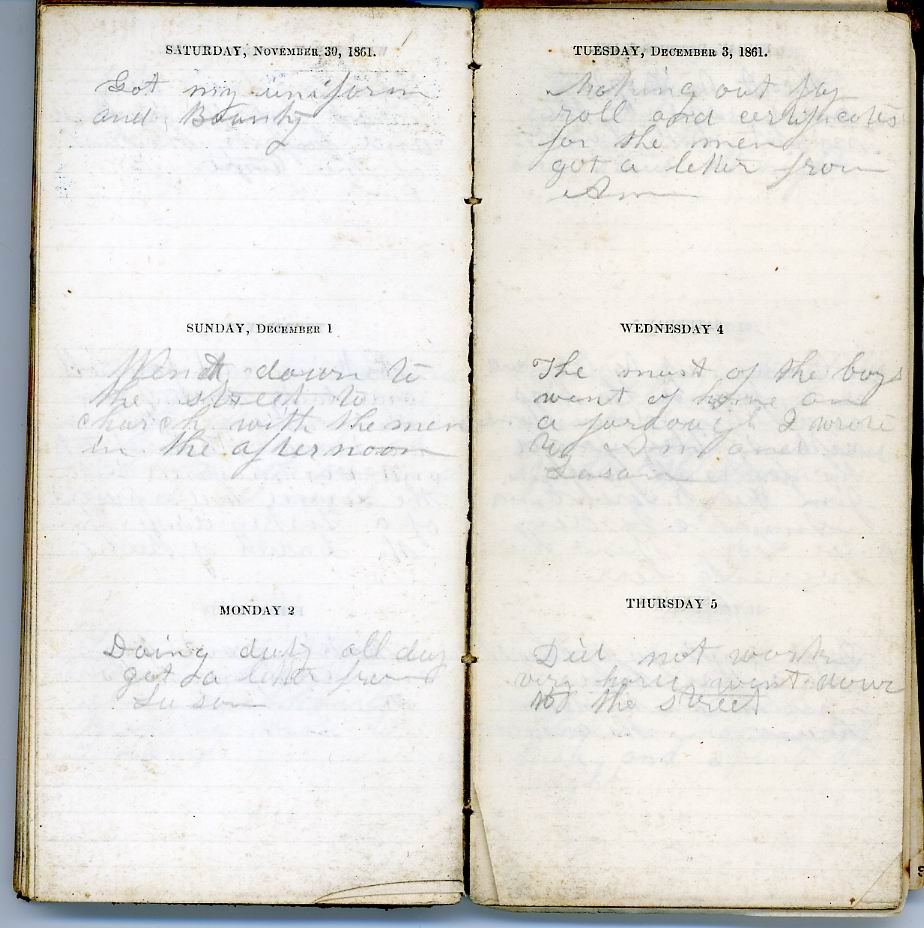 SATURDAY, NOVEMBER 30, 1861.
Got my uniform
and Bounty
SUNDAY, DECEMBER 1
Went down to
the street to
church with the men
in the afternoon
MONDAY 2
Doing duty all day
got a letter from
Susan
TUESDAY, DECEMBER 3, 1861.
Making out pay
roll and certificates
for the men
got a letter from
Am
WEDNESDAY 4
The most of the boys
went of home on
a furlough I wrote
to Am and
Susan
THURSDAY 5
Did not work
very hard went down
to the street